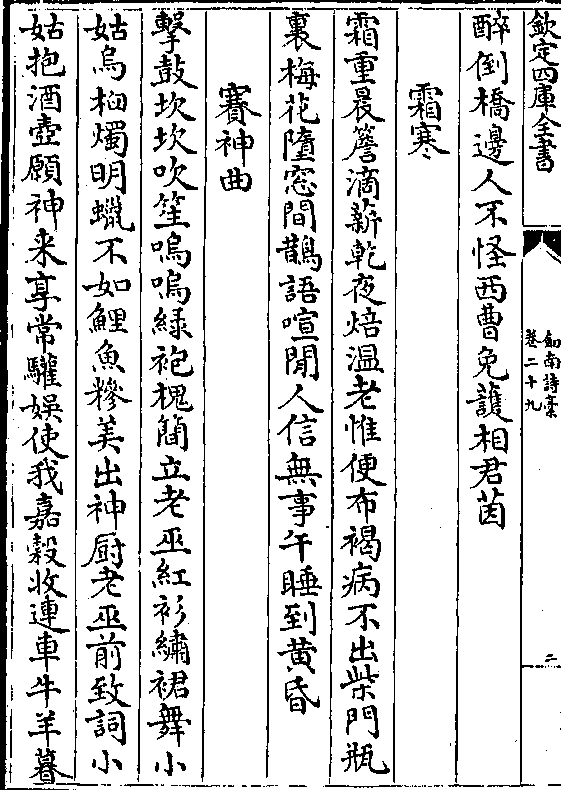 欽定四庫全書
劍南詩藁
卷二十九
二
醉倒橋邊人不怪西曹免䕶相君茵
霜寒
霜重晨簷滴薪乾夜焙温老惟便布褐病不出柴門瓶
裏梅花墮窓間鵲語喧閒人信無事午睡到黄昏
賽神曲
擊鼓坎坎吹笙嗚嗚緑袍槐簡立老巫紅衫繡裙舞小
姑烏桕燭明蠟不如鯉魚糝美出神厨老巫前致詞小
姑抱酒壺願神来享常驩娱使我嘉穀收連車牛羊暮